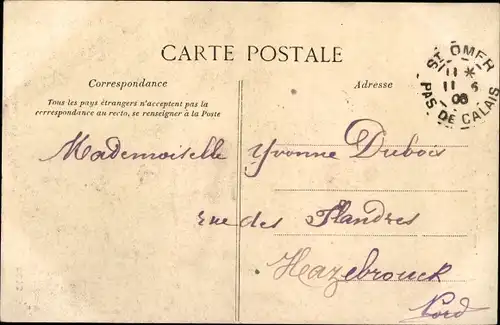 CARTE POSTALE
Correspondance
Tous les pays étrangers n'acceptent pas la
correspondance au recto, se renseigner à la Poste
Adresse
ST OMER
11 *
11 6
06
PAS DE CALAIS
Mademoiselle Yvonne Dubois
rue des Flandres
Hazebrouck
Nord